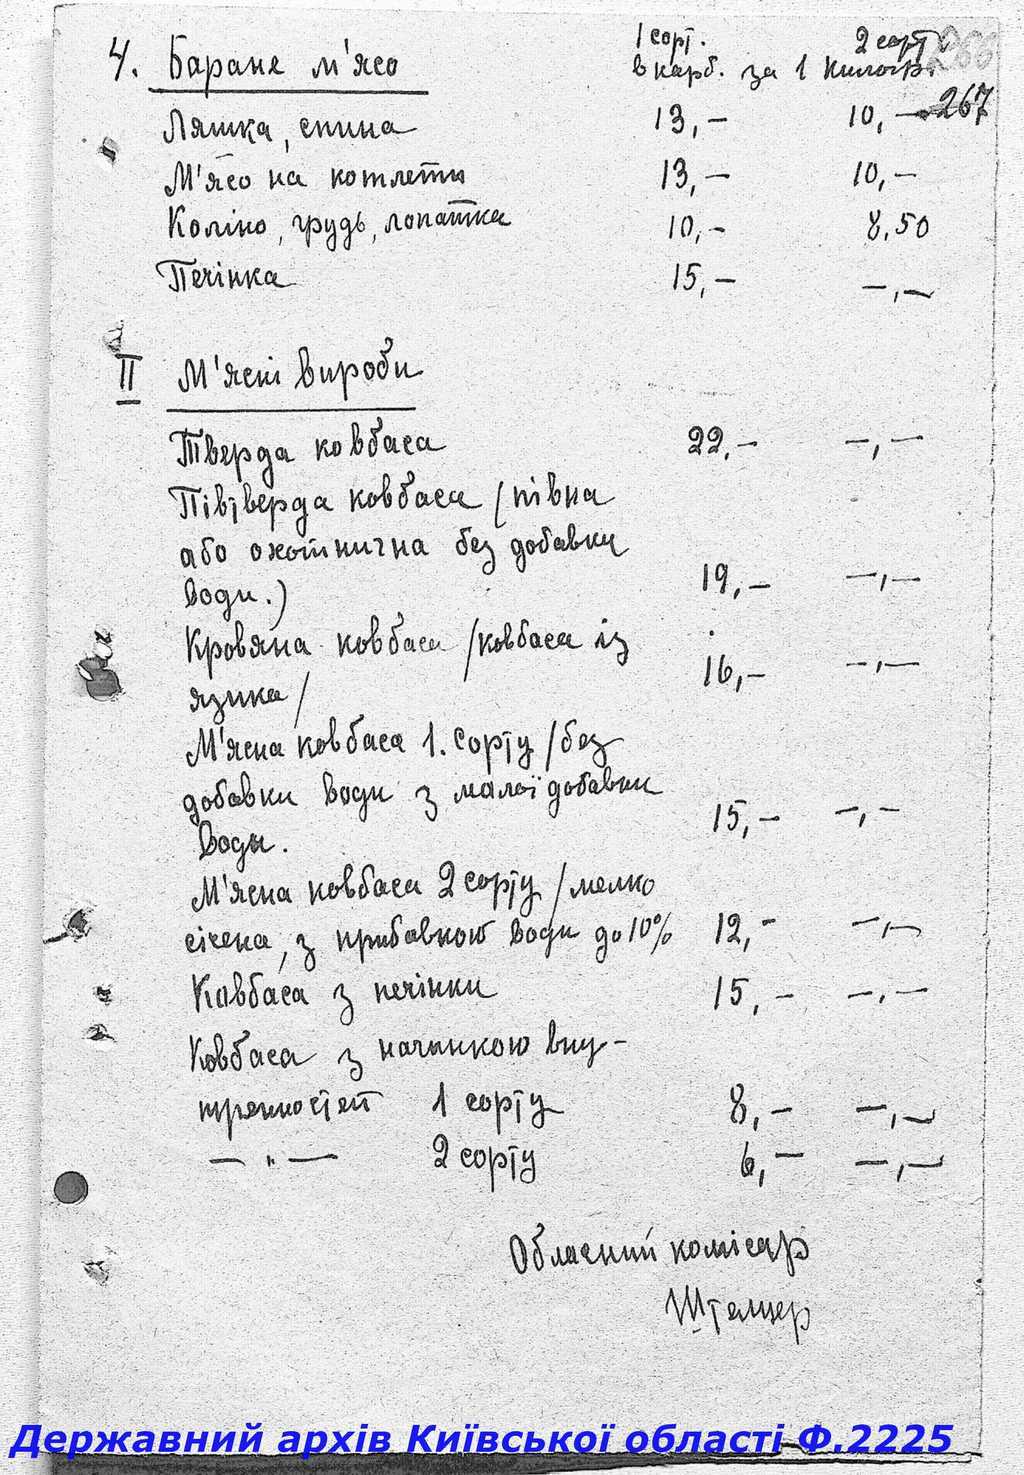 1 сорт. 2 сорт 266
4. Баране м'ясо в карб. за 1 килогр.
267
Ляшка, спина 13,— 10,—
М'ясо на котлети 13,— 10,—
Коліно, грудь, лопатка 10,— 8,50
Печінка 15,— —,—
II М'ясні вироби
Тверда ковбаса 22,— —,—
Півтверда ковбаса /півна
або охотнична без добавки
води.) 19,— —,—
Кровяна ковбаса /ковбаса із
язика/ 16,— —,—
М'ясна ковбаса 1. сорту /без
добавки води з малої добавки
води. 15,— —,—
М'ясна ковбаса 2 сорту /мелко
січена, з прибавкою води до 10% 12,— —,—
Ковбаса з печінки 15,— —,—
Ковбаса з начинкою вну-
тренностей 1 сорту 8,— —,—
— " — 2 сорту 6,— —,—
Обласний комісар
Штелцер
Державний архів Київської області Ф.2225